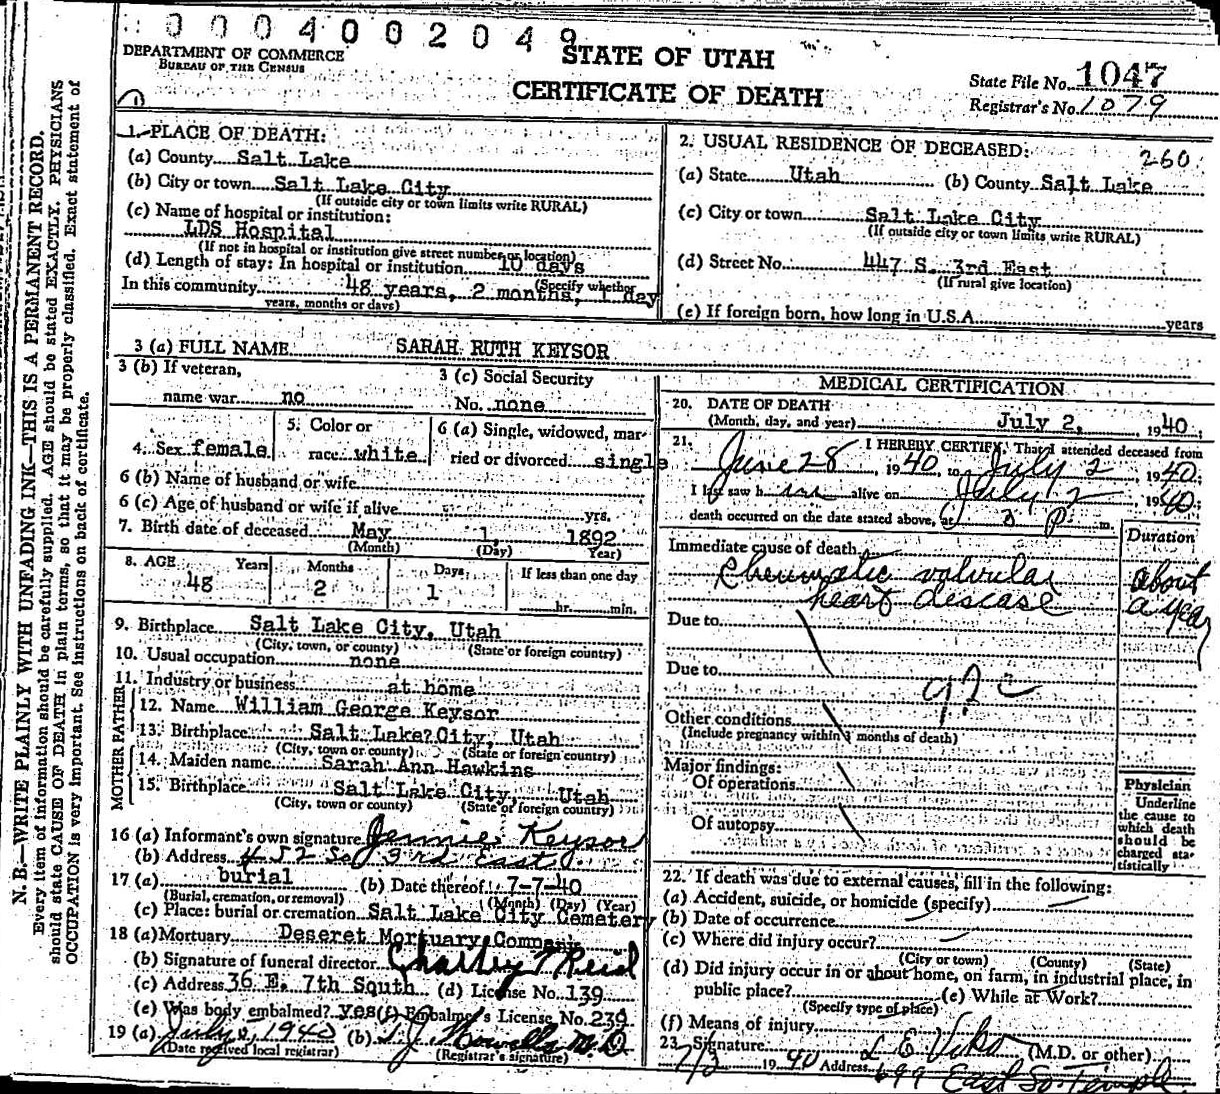 0004002049
DEPARTMENT OF COMMERCE
BUREAU OF THE CENSUS
STATE OF UTAH
CERTIFICATE OF DEATH
State File No. 1047
Registrar's No. 1079
1. PLACE OF DEATH:
(a) County Salt Lake
(b) City or town Salt Lake City
(If outside city or town limits write RURAL)
(c) Name of hospital or institution:
LDS Hospital
(If not in hospital or institution give street number or location)
(d) Length of stay: In hospital or institution 10 days
(Specify whether
In this community 48 years, 2 months, 1 day
years, months or days)
2. USUAL RESIDENCE OF DECEASED: 260
(a) State Utah (b) County Salt Lake
(c) City or town Salt Lake City
(If outside city or town limits write RURAL)
(d) Street No. 447 S. 3rd East
(If rural give location)
(e) If foreign born, how long in U.S.A. years
3 (a) FULL NAME SARAH RUTH KEYSOR
3 (b) If veteran,
name war no
3 (c) Social Security
No. none
4. Sex female
5. Color or
race white
6 (a) Single, widowed, mar-
ried or divorced single
6 (b) Name of husband or wife
6 (c) Age of husband or wife if alive yrs.
7. Birth date of deceased May 1, 1892
(Month) (Day) Year)
8. AGE Years Months Days If less than one day
48 2 1 hr. min.
9. Birthplace Salt Lake City, Utah
(City, town, or county) (State or foreign country)
10. Usual occupation none
11. Industry or business at home
FATHER
12. Name William George Keysor
13. Birthplace Salt Lake City, Utah
(City, town or county) (State or foreign country)
MOTHER
14. Maiden name Sarah Ann Hawkins
15. Birthplace Salt Lake City, Utah
(City, town or county) (State or foreign country)
16 (a) Informant's own signature Jennie Keysor
(b) Address 452 So 3rd East
17 (a) burial (b) Date thereof 7-7-40
(Burial, cremation, or removal) (Month) (Day) (Year)
(c) Place: burial or cremation Salt Lake City Cemetery
18 (a) Mortuary Deseret Mortuary Company
(b) Signature of funeral director Charley T Reid
(c) Address 36 E. 7th South (d) License No. 139
(e) Was body embalmed? Yes (f) Embalmer's License No. 239
19 (a) July 2, 1940 (b) T. J. Howells M.D.
(Date received local registrar) (Registrar's signature)
MEDICAL CERTIFICATION
20. DATE OF DEATH
(Month, day, and year) July 2, 1940
21. I HEREBY CERTIFY That I attended deceased from
June 28 1940 to July 2 1940
I last saw h alive on July 2 1940
death occurred on the date stated above, at 3 P m.
Immediate cause of death
Duration
Rheumatic valvular
heart disease
about
a year
Due to
Due to
92c
Other conditions
(Include pregnancy within 3 months of death)
Major findings:
Of operations
Of autopsy
Physician
Underline
the cause to
which death
should be
charged sta-
tistically
22. If death was due to external causes, fill in the following:
(a) Accident, suicide, or homicide (specify)
(b) Date of occurrence
(c) Where did injury occur?
(City or town) (County) (State)
(d) Did injury occur in or about home, on farm, in industrial place, in
public place? (e) While at Work?
(Specify type of place)
(f) Means of injury
23. Signature L E Viko (M.D. or other)
7/3 1940 Address 699 East So. Temple
N. B.—WRITE PLAINLY WITH UNFADING INK—THIS IS A PERMANENT RECORD.
Every item of information should be carefully supplied. AGE should be stated EXACTLY. PHYSICIANS
should state CAUSE OF DEATH in plain terms, so that it may be properly classified. Exact statement of
OCCUPATION is very important. See instructions on back of certificate.